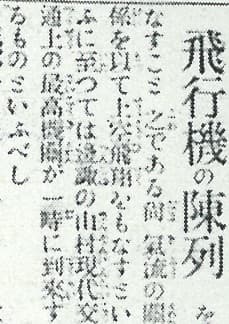 飛行機の陳列を
なすこと之である尚氣流の關
係を以て上空飛翔をもなすとい
ふに至つては遠諏の山村現代交
通上の最高機關が一時に到來す
るものといふべし